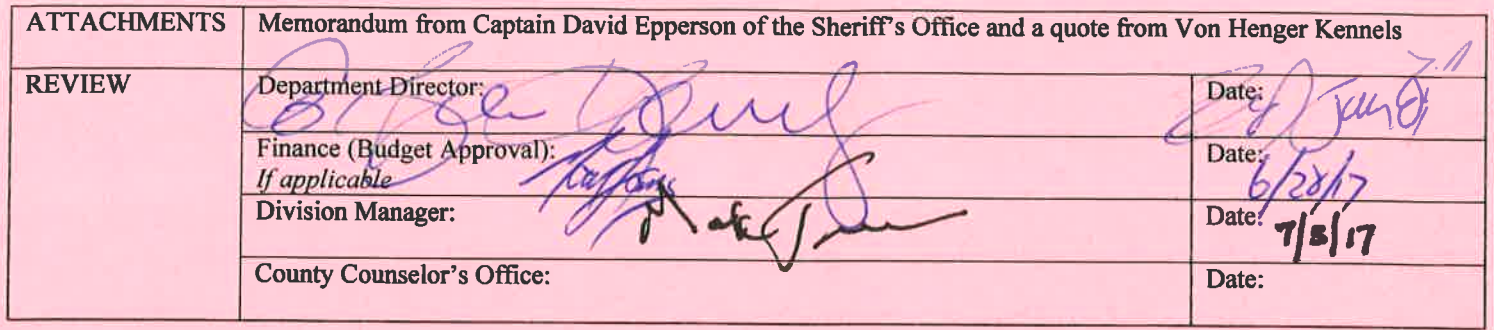 ATTACHMENTS Memorandum from Captain David Epperson of the Sheriff's Office and a quote from Von Henger Kennels
REVIEW Department Director: Date:
Finance (Budget Approval): Date: 6/28/17
If applicable
Division Manager: Date: 7/3/17
County Counselor's Office: Date: